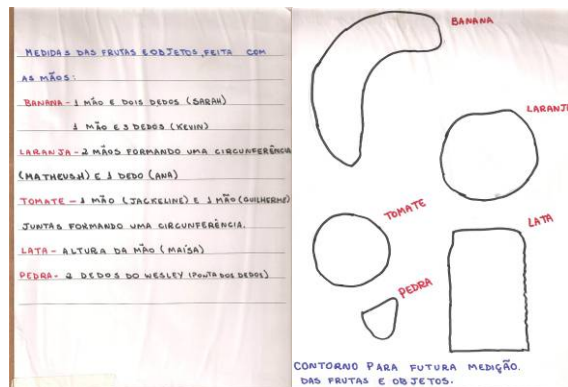 MEDIDAS DAS FRUTAS E OBJETOS, FEITA COM
AS MÃOS:
BANANA - 1 MÃO E DOIS DEDOS (SARAH)
1 MÃO E 3 DEDOS (KEVIN)
LARANJA - 2 MÃOS FORMANDO UMA CIRCUNFERÊNCIA
(MATHEUSH) E 1 DEDO (ANA)
TOMATE - 1 MÃO (JACKELINE) E 1 MÃO (GUILHERME)
JUNTAS FORMANDO UMA CIRCUNFERÊNCIA.
LATA - ALTURA DA MÃO (MAÍSA)
PEDRA - 2 DEDOS DO WESLEY (PONTA DOS DEDOS)
BANANA
LARANJA
TOMATE
LATA
PEDRA
CONTORNO PARA FUTURA MEDIÇÃO.
DAS FRUTAS E OBJETOS.